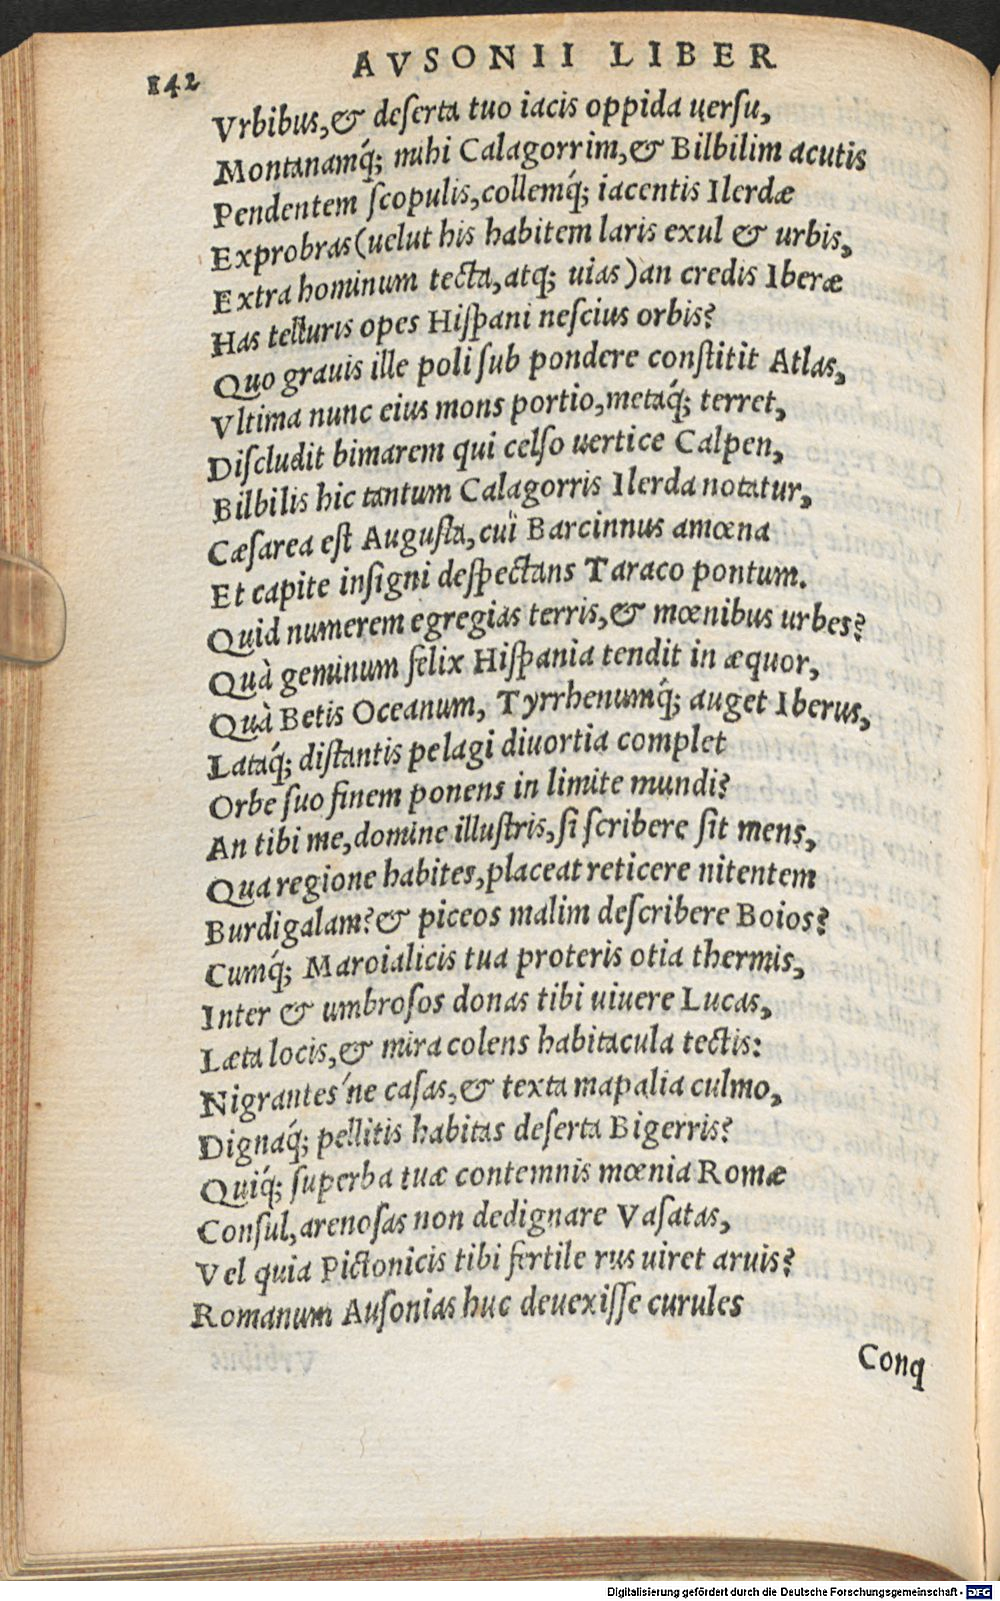 142
AVSONII LIBER
Vrbibus,& deserta tuo iacis oppida uersu,
Montanamq́; mihi Calagorrim,& Bilbilim acutis
Pendentem scopulis,collemq́; iacentis Ilerdæ
Exprobras(uelut his habitem laris exul & urbis,
Extra hominum tecta,atq; uias)an credis Iberæ
Has telluris opes Hispani nescius orbis?
Quo grauis ille poli sub pondere constitit Atlas,
Vltima nunc eius mons portio,metaq́; terret,
Discludit bimarem qui celso uertice Calpen,
Bilbilis hic tantum Calagorris Ilerda notatur,
Cæsarea est Augusta,cuï Barcinnus amœna
Et capite insigni despectans Taraco pontum.
Quid numerem egregias terris,& mœnibus urbes?
Quà geminum felix Hispania tendit in æquor,
Quà Betis Oceanum, Tyrrhenumq́; auget Iberus,
Lataq́; distantis pelagi diuortia complet
Orbe suo finem ponens in limite mundi?
An tibi me,domine illustris,si scribere sit mens,
Qua regione habites,placeat reticere nitentem
Burdigalam?& piceos malim describere Boios?
Cumq́; Maroialicis tua proteris otia thermis,
Inter & umbrosos donas tibi uiuere Lucas,
Læta locis,& mira colens habitacula tectis:
Nigrantes´ne casas,& texta mapalia culmo,
Dignaq́; pellitis habitas deserta Bigerris?
Quiq́; superba tuæ contemnis mœnia Romæ
Consul,arenosas non dedignare Vasatas,
Vel quia Pictonicis tibi fertile rus uiret aruis?
Romanum Ausonias huc deuexisse curules
Conq
Digitalisierung gefördert durch die Deutsche Forschungsgemeinschaft - DFG